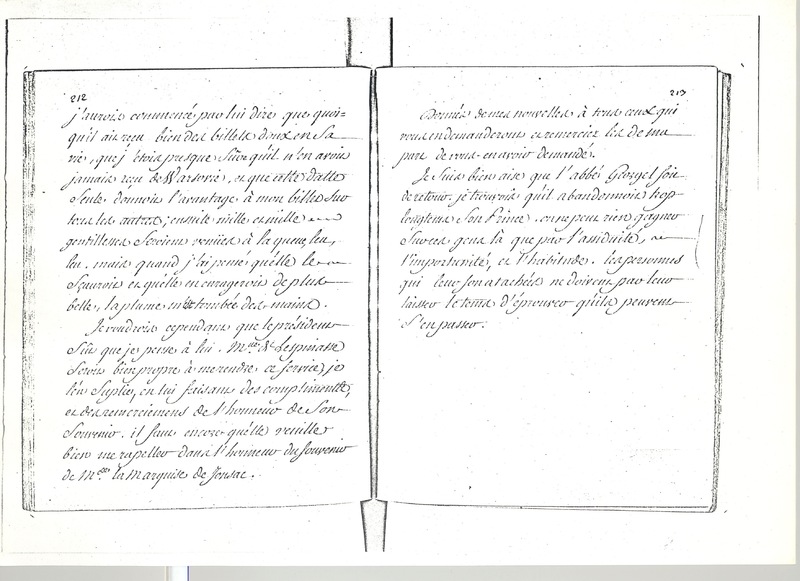 212
j'aurois commencé par lui dire que quoi=
qu'il ait reçu bien des billets doux en sa
vie, que j'étois presque sûre qu'il n'en avoit
jamais reçu de Varsovie, et que cette datte
seule donnoit l'avantage à mon billet sur
tous les autres; ensuite mille et mille
gentillesses seroient venües à la queue leu,
leu. mais quand j'ai pensé qu'elle le
sçauroit et qu'elle en enrageroit de plus
belle, la plume m'est tombée des mains.
Je voudrois cependant que le président
sût que je pense à lui. Mlle de Lespinasse
seroit bien propre à me rendre ce service, je
l'en suplie, en lui faisant des complimens,
et des remerciemens de l'honneur de son
souvenir. il faut encore qu'elle veuille
bien me rapeller dans l'honneur du souvenir
de Mde la Marquise de Jonsac.
213
Donnés de mes nouvelles à tous ceux qui
vous en demanderont et remerciez les de ma
part de vous en avoir demandé.
Je suis bien aise que l'abbé Georgel soit
de retour. je trouvois qu'il abandonnoit trop
longtems son Prince. on ne peut rien gagner
sur ces gens là que par l'assiduité,
l'importunité, et l'habitude. les personnes
qui leur son atachés ne doivent pas leur
laisser le tems d'éprouver qu'ils peuvent
s'en passer.